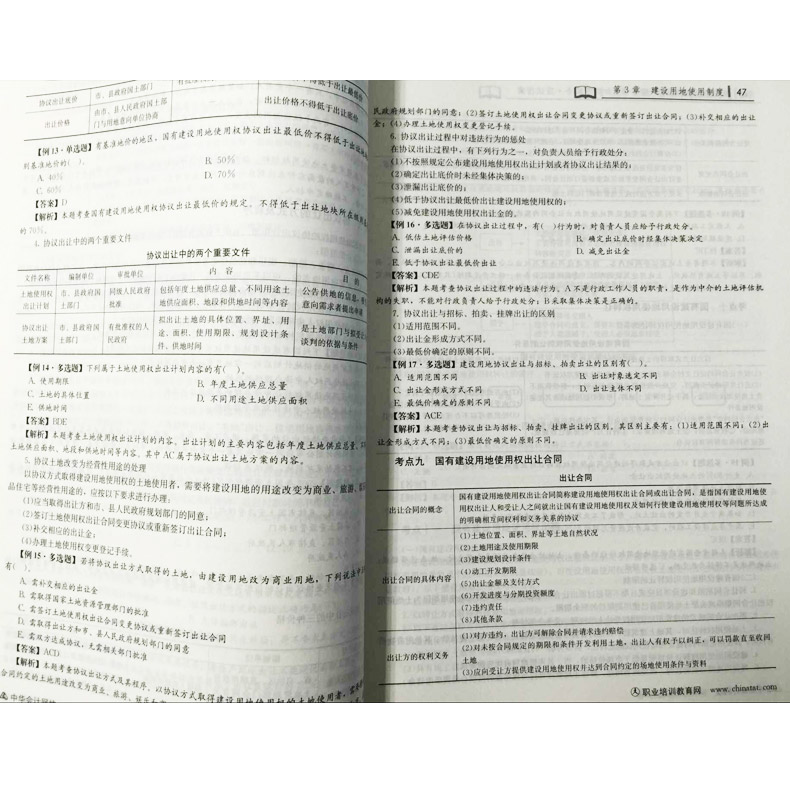 协议出让底价 市、县政府国土部门
出让价格 由市、县人民政府国土部门与用地意向单位协商 出让价格不得低于出让底价
【例 13·单选题】 有基准地价的地区，国有建设用地使用权协议出让最低价不得低于出让地
别基准地价的( )。
A. 40% B. 50%
C. 60% D. 70%
【答案】 D
【解析】 本题考查国有建设用地使用权协议出让最低价的规定。不得低于出让地块所在级别
的 70%。
4. 协议出让中的两个重要文件
协议出让中的两个重要文件
文件名称 编制单位 审批单位 内 容 目 的
土地使用权出让计划 市、县政府国土部门 同级人民政府批准 包括年度土地供应总量、不同用途土地供应面积、地段和供地时间等内容 公告供地的信息，
意向需求者提出申请
协议出让土地方案 市、县政府国土部门 有批准权的人民政府 拟出让地块的具体位置、界址、用途、面积、使用期限、规划设计条件、供地时间 是土地部门与拟受
谈判的依据与条件
【例 14·多选题】 下列属于土地使用权出让计划内容的有( )。
A. 使用期限 B. 年度土地供应总量
C. 土地的具体位置 D. 不同用途土地供应面积
E. 供地时间
【答案】 BDE
【解析】 本题考查土地使用权出让计划的内容。出让计划的主要内容包括年度土地供应总量、
土地供应面积、地段和供地时间等内容。其中 AC 属于协议出让土地方案的内容。
5. 协议土地改变为经营性用途的处理
以协议方式取得建设用地使用权的土地使用者，需要将建设用地的用途改变为商业、旅游、
品住宅等经营性用途的，应按以下要求进行办理：
(1)应当取得出让方和市、县人民政府规划部门的同意；
(2)签订土地使用权出让合同变更协议或重新签订出让合同；
(3)补交相应的出让金；
(4)办理土地使用权变更登记手续。
【例 15·多选题】 若将协议出让方式取得的土地，由建设用地改为商业用地，下列说法中
有( )。
A. 需补交相应的出让金
B. 需取得国家土地资源管理部门的批准
C. 需签订土地使用权出让合同变更协议或重新签订出让合同
D. 需取得出让方和市、县人民政府规划部门的同意
E. 需双方达成协议，无需相关部门批准
【答案】 ACD
【解析】 本题考查协议出让方式及其程序。以协议方式取得建设用地使用权的土地使用者，
合同约定的土地用途改变为商业、旅游、娱乐
中华会计网
第 3 章 建设用地使用制度 47
民政府规划部门的同意；(2)签订土地使用权出让合同变更协议或重新签订出让合同；(3)补交相应的出让
金；(4)办理土地使用权变更登记手续。
6. 协议出让过程中对违法行为的惩处
在协议出让过程中，有下列行为之一，对负责人员给予行政处分：
(1)不按照规定公布建设用地使用权出让计划或者协议出让结果的；
(2)确定出让底价时未经集体决策的；
(3)泄漏出让底价的；
(4)低于协议出让最低价出让建设用地使用权的；
(5)减免建设用地使用权出让金的。
【例 16·多选题】 在协议出让过程中，有( )行为时，对负责人员应给予行政处分。
A. 低估土地评估价格 B. 确定出让底价时经集体决策决定
C. 泄漏出让底价的 D. 减免出让金
E. 低于协议出让最低价出让
【答案】 CDE
【解析】 本题考查协议出让过程中的违法行为。A 不是行政工作人员的职责，是作为中介的土地评估机
构的失职，不能对行政责任人给予行政处分；B 采取集体决策是正确的。
7. 协议出让与招标、拍卖、挂牌出让的区别
(1)适用范围不同。
(2)出让金形成方式不同。
(3)最低价确定的原则不同。
【例 17·多选题】 建设用地协议出让与招标、拍卖出让的区别有( )。
A. 适用范围不同 B. 出让对象选定不同
C. 出让金形成方式不同 D. 出让主体不同
E. 最低价确定的原则不同
【答案】 ACE
【解析】 本题考查协议出让与招标、拍卖、挂牌出让的区别。其区别主要有：(1)适用范围不同；(2)出
让金形成方式不同；(3)最低价确定的原则不同。
考点九 国有建设用地使用权出让合同
出让合同
出让合同的概念 国有建设用地使用权出让合同简称建设用地使用权出让合同或出让合同，是指国有建设用地使
用权出让人和受让人之间就出让国有建设用地使用权及如何行使建设用地使用权等问题所达成
的明确相互间权利和义务关系的协议
出让合同的具体内容 (1)土地位置、面积、界址等土地自然状况
(2)土地用途及使用期限
(3)建设规划设计条件
(4)动工开发期限
(5)出让金额及支付方式
(6)开发进度与分期投资额度
(7)违约责任
(8)其他条款
出让方的权利义务 (1)对方违约，出让方可解除合同并请求违约赔偿
(2)对未按合同规定的期限和条件开发利用土地，出让人有权予以纠正，可以罚款直至收回
土地
(3)应向受让方提供建设用地使用权并达到合同约定的场地使用条件与资料
职业培训教育网 www.chinatat.com